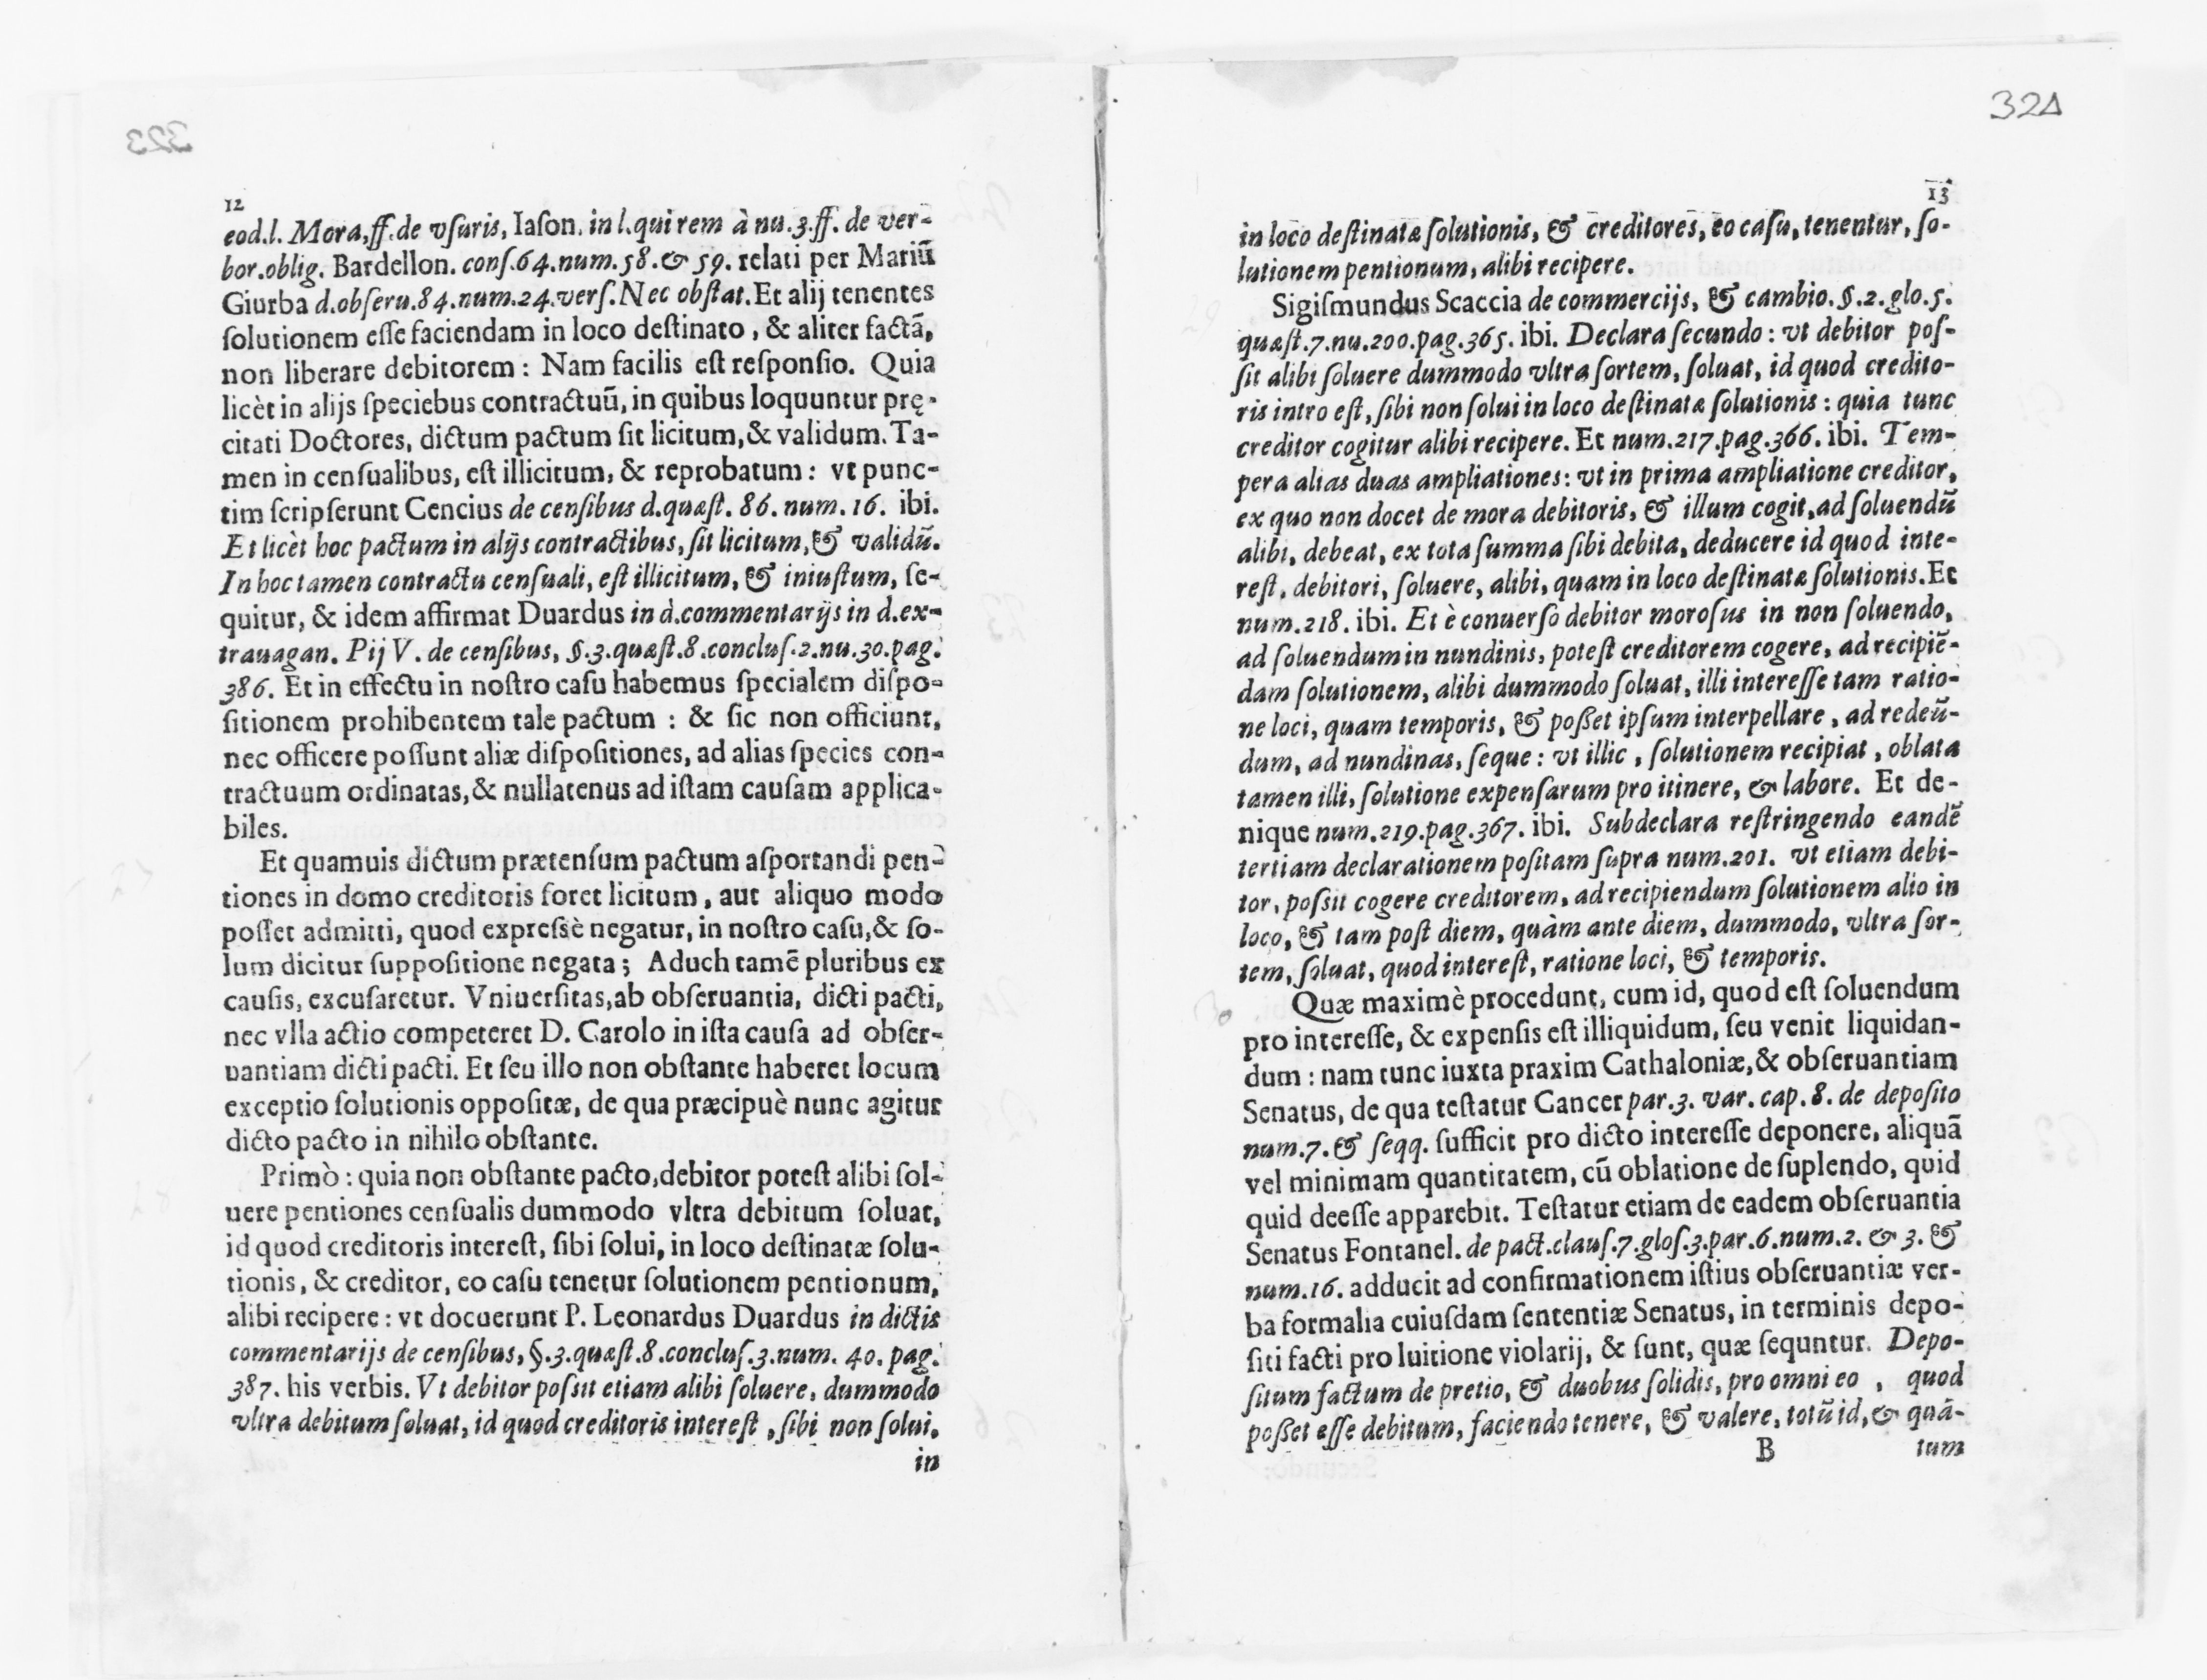 12
eod.l. Mora,ff.de vſuris, Iaſon. in l.qui rem à nu.3.ff. de ver-
bor.oblig. Bardellon. conſ.64.num.58.& 59. relati per Mariũ
Giurba d.obſeru.84.num.24.verſ.Nec obſtat.Et alij tenentes
ſolutionem eſſe faciendam in loco deſtinato, & aliter factã,
non liberare debitorem: Nam facilis eſt reſponſio. Quia
licèt in alijs ſpeciebus contractuũ, in quibus loquuntur prę-
citati Doctores, dictum pactum ſit licitum,& validum. Ta-
men in cenſualibus, eſt illicitum, & reprobatum: vt punc-
tim ſcripſerunt Cencius de cenſibus d.quæſt. 86. num. 16. ibi.
Et licèt hoc pactum in alijs contractibus, ſit licitum,& validũ.
In hoc tamen contractu cenſuali, eſt illicitum, & iniuſtum, ſe-
quitur, & idem affirmat Duardus in d.commentarijs in d.ex-
trauagan. Pij V. de cenſibus, §.3.quæſt.8.concluſ.2.nu.30.pag.
386. Et in effectu in noſtro caſu habemus ſpecialem diſpo-
ſitionem prohibentem tale pactum: & ſic non officiunt,
nec officere poſſunt aliæ diſpoſitiones, ad alias ſpecies con-
tractuum ordinatas,& nullatenus ad iſtam cauſam applica-
biles.
Et quamuis dictum prætenſum pactum aſportandi pen-
tiones in domo creditoris foret licitum, aut aliquo modo
poſſet admitti, quod expreſsè negatur, in noſtro caſu,& ſo-
lum dicitur ſuppoſitione negata; Aduch tamẽ pluribus ex
cauſis, excuſaretur. Vniuerſitas,ab obſeruantia, dicti pacti,
nec vlla actio competeret D. Carolo in iſta cauſa ad obſer-
uantiam dicti pacti. Et ſeu illo non obſtante haberet locum
exceptio ſolutionis oppoſitæ, de qua præcipuè nunc agitur
dicto pacto in nihilo obſtante.
Primò: quia non obſtante pacto,debitor poteſt alibi ſol-
uere pentiones cenſualis dummodo vltra debitum ſoluat,
id quod creditoris intereſt, ſibi ſolui, in loco deſtinatæ ſolu-
tionis, & creditor, eo caſu tenetur ſolutionem pentionum,
alibi recipere: vt docuerunt P. Leonardus Duardus in dictis
commentarijs de cenſibus, §.3.quæſt.8.concluſ.3.num. 40. pag.
387. his verbis. Vt debitor poſſit etiam alibi ſoluere, dummodo
vltra debitum ſoluat, id quod creditoris intereſt, ſibi non ſolui,
in
324
13
in loco deſtinatæ ſolutionis, & creditores, eo caſu, tenentur, ſo-
lutionem pentionum, alibi recipere.
Sigiſmundus Scaccia de commercijs, & cambio. §.2.glo.5.
quæſt.7.nu.200.pag.365. ibi. Declara ſecundo: vt debitor poſ-
ſit alibi ſoluere dummodo vltra ſortem, ſoluat, id quod credito-
ris intro eſt, ſibi non ſolui in loco deſtinatæ ſolutionis: quia tunc
creditor cogitur alibi recipere. Et num.217.pag.366. ibi. Tem-
pera alias duas ampliationes: vt in prima ampliatione creditor,
ex quo non docet de mora debitoris, & illum cogit,ad ſoluendũ
alibi, debeat, ex tota ſumma ſibi debita, deducere id quod inte-
reſt, debitori, ſoluere, alibi, quam in loco deſtinatæ ſolutionis.Et
num.218. ibi. Et è conuerſo debitor moroſus in non ſoluendo,
ad ſoluendum in nundinis, poteſt creditorem cogere, ad recipiẽ-
dam ſolutionem, alibi dummodo ſoluat, illi intereſſe tam ratio-
ne loci, quam temporis, & poßet ipſum interpellare, ad redeũ-
dum, ad nundinas, ſeque: vt illic, ſolutionem recipiat, oblata
tamen illi, ſolutione expenſarum pro itinere, & labore. Et de-
nique num.219.pag.367. ibi. Subdeclara reſtringendo eandẽ
tertiam declarationem poſitam ſupra num.201. vt etiam debi-
tor, poſsit cogere creditorem, ad recipiendum ſolutionem alio in
loco, & tam poſt diem, quàm ante diem, dummodo, vltra ſor-
tem, ſoluat, quod intereſt, ratione loci, & temporis.
Quæ maximè procedunt, cum id, quod eſt ſoluendum
pro intereſſe, & expenſis eſt illiquidum, ſeu venit liquidan-
dum: nam tunc iuxta praxim Cathaloniæ,& obſeruantiam
Senatus, de qua teſtatur Cancer par.3. var. cap. 8. de depoſito
num.7. & ſeqq. ſufficit pro dicto intereſſe deponere, aliquã
vel minimam quantitatem, cũ oblatione de ſuplendo, quid
quid deeſſe apparebit. Teſtatur etiam de eadem obſeruantia
Senatus Fontanel. de pact.clauſ.7.gloſ.3.par.6.num.2. & 3. &
num.16. adducit ad confirmationem iſtius obſeruantiæ ver-
ba formalia cuiuſdam ſententiæ Senatus, in terminis depo-
ſiti facti pro luitione violarij, & ſunt, quæ ſequntur. Depo-
ſitum factum de pretio, & duobus ſolidis, pro omni eo, quod
poßet eſſe debitum, faciendo tenere, & valere, totũ id,& quã-
B tum